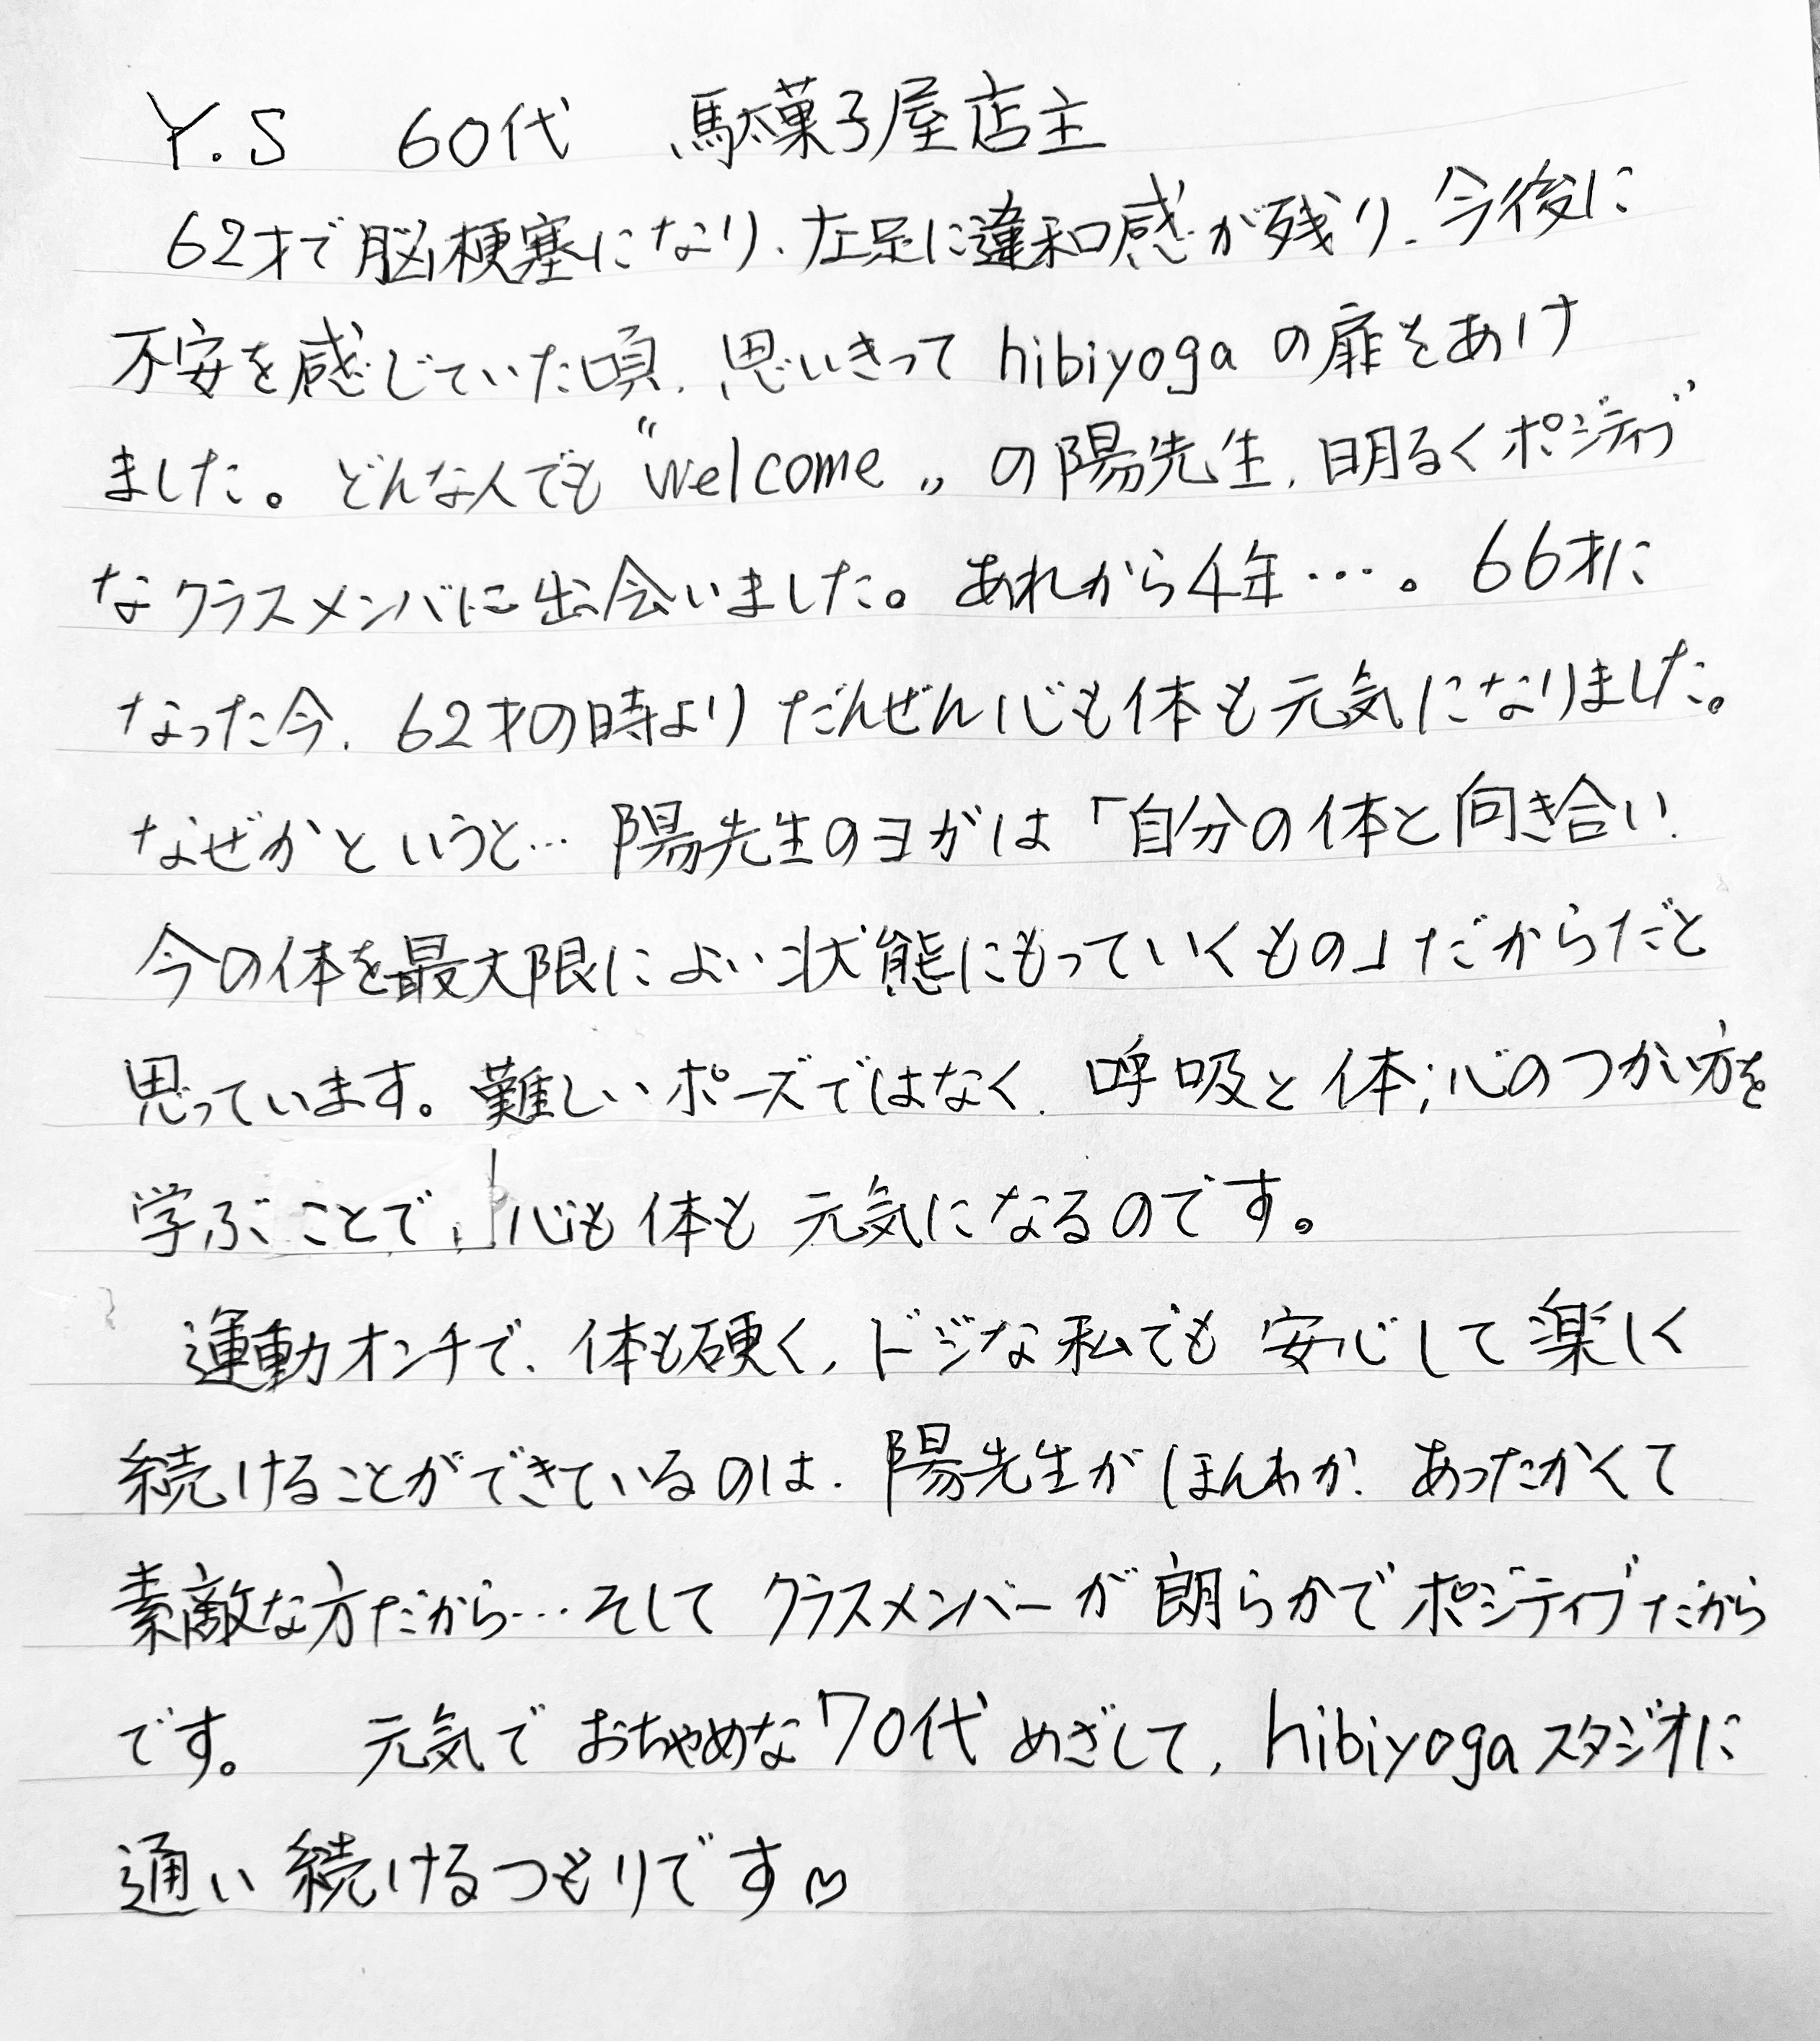 Y.S 60代 駄菓子屋店主
62才で脳梗塞になり、左足に違和感が残り、今後に
不安を感じていた頃、思いきって hibiyoga の扉をあけ
ました。どんな人でも“welcome„の陽先生、明るくポジティブ
なクラスメンバに出会いました。あれから4年…。66才に
なった今、62才の時よりだんぜん心も体も元気になりました。
なぜかというと…陽先生のヨガは「自分の体と向き合い、
今の体を最大限によい状態にもっていくもの」だからだと
思っています。難しいポーズではなく、呼吸と体;心のつかい方を
学ぶことで、心も体も元気になるのです。
運動オンチで、体も硬く、ドジな私でも安心して楽しく
続けることができているのは、陽先生がほんわか、あったかくて
素敵な方だから…そしてクラスメンバーが朗らかでポジティブだから
です。 元気でおちゃめな70代めざして、hibiyogaスタジオに
通い続けるつもりです♡